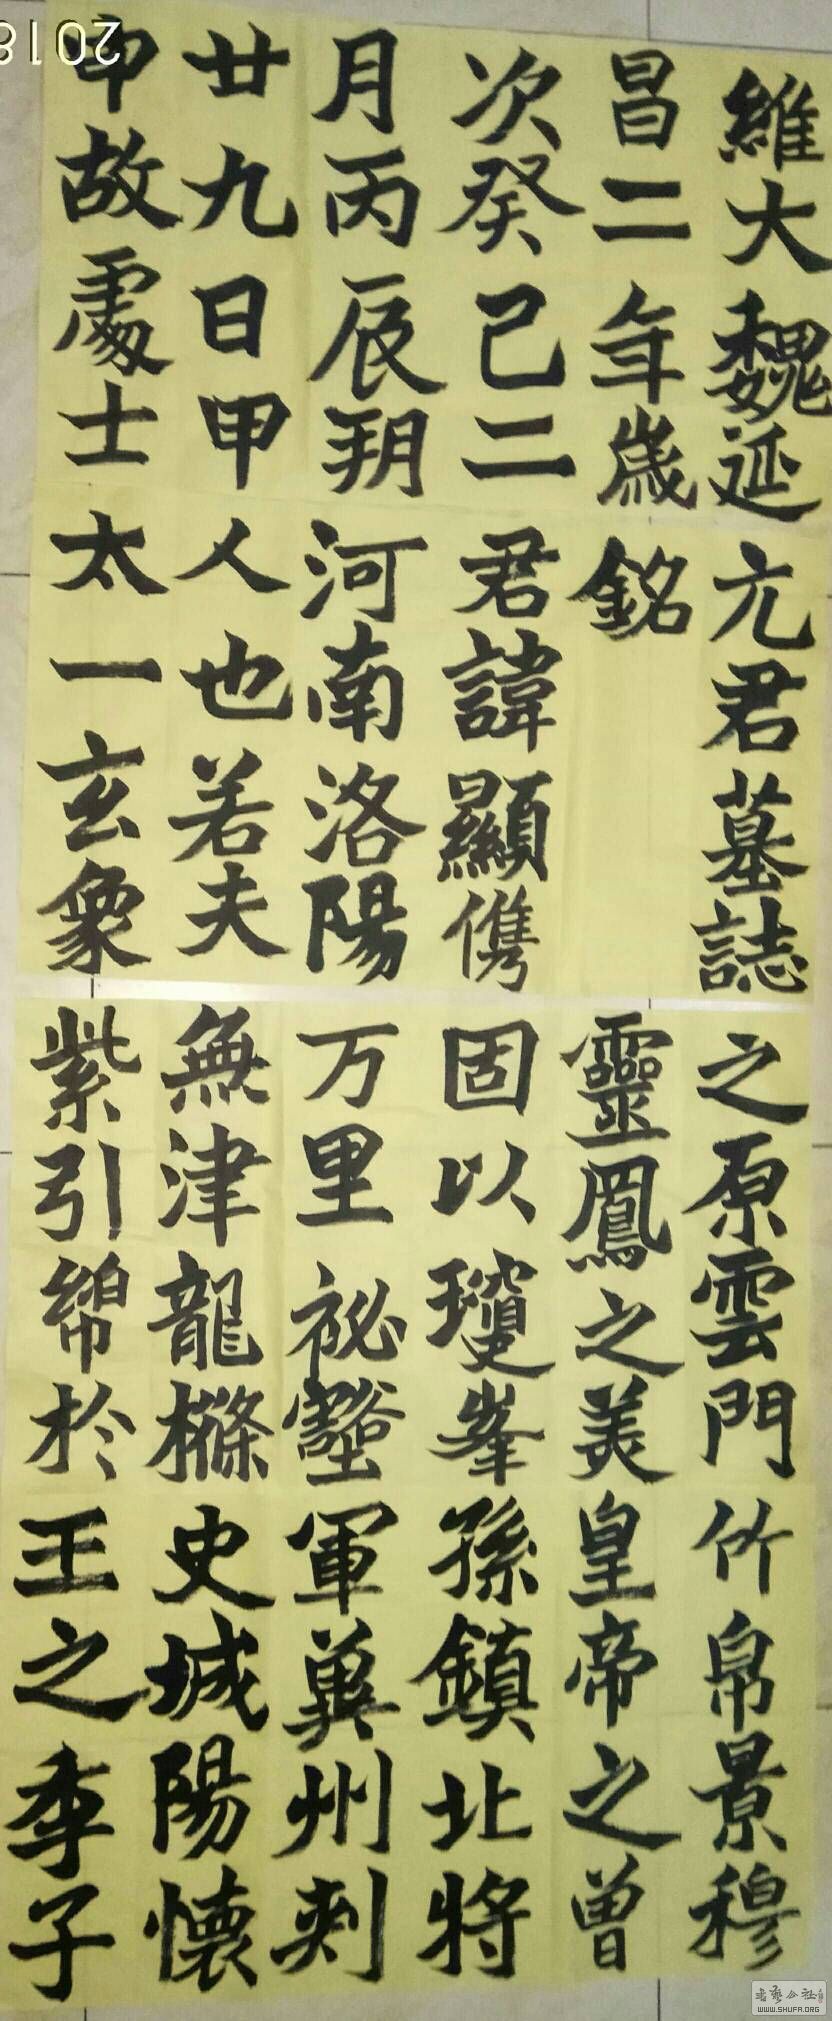 維大魏延
昌二年歲
次癸巳二
月丙辰朔
廿九日甲
申故處士
元君墓誌
銘
君諱顯儁
河南洛陽
人也若夫
太一玄象
之原雲門
靈鳳之美
固以瓊峯
万里祕壑
無津龍樤
紫引綿於
竹帛景穆
皇帝之曾
孫鎮北將
軍冀州刺
史城陽懷
王之季子
2018
书艺公社
WWW.SHUFA.ORG